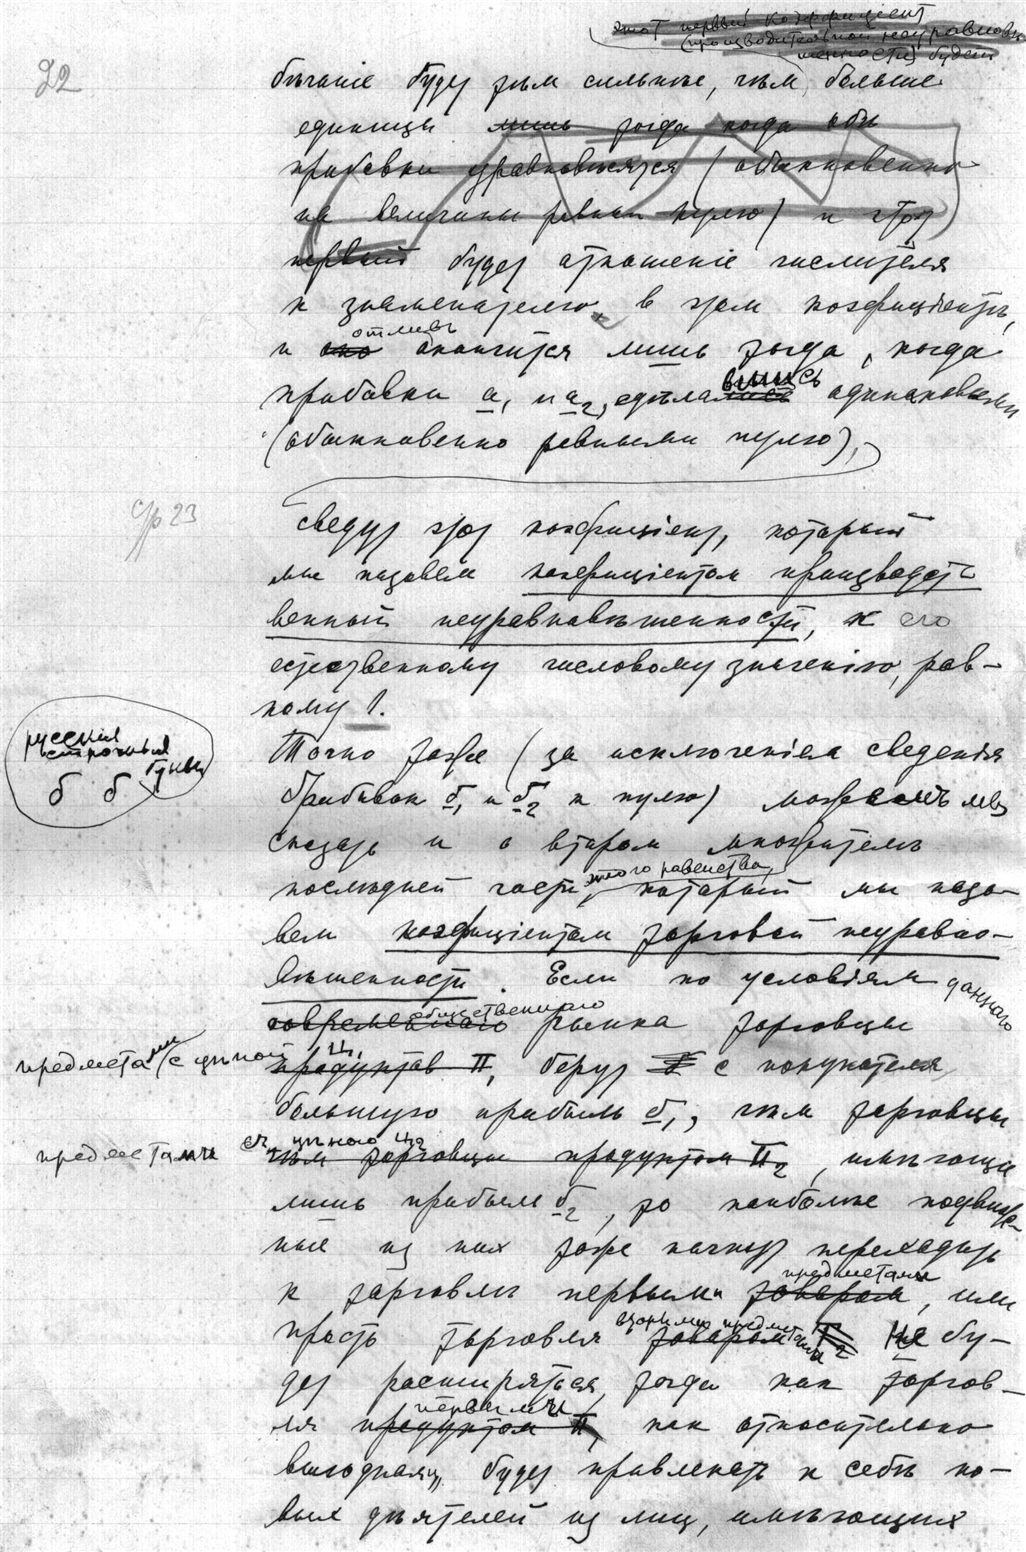 этотъ первый коэффиціентъ
(производительной неуравновѣ-
шенности) будетъ
22
бѣганіе будетъ тѣм сильнѣе, чѣм больше
единицы лишь тогда когда обѣ
прибавки уравновѣсятся (обыкновенно
на величины равныя нулю) и этот
первый будет отношеніе числителя
к знаменателю в этом коэфиціентѣ,
и оно отливъ окончится лишь тогда, когда
прибавки а₁ и а₂, сдѣлавшись одинаковыми
(обыкновенно равными нулю),
стр 23
сведут этот коэфиціент, который
мы назовем коэфиціентом производст-
венной неуравновѣшенности, к его
естественному числовому значенію, рав-
ному 1.
русскія
строчныя
буквы
б б
Точно также (за исключеніем сведенія
Прибавок б₁ и б₂ к нулю) можемъ мы
сказать и о втором множителѣ
послѣдней части этого равенства, который мы назо-
вем коэфиціентом торговой неуравно-
вѣшенности. Если по условіям даннаго
современнаго общественнаго рынка торговцы
предметами (с цѣной ц₁
продуктов П, берут с покупателя
большую прибыль б₁, чѣм торговцы
предметами съ цѣною ц₂
чѣм торговцы продуктом П₂, имѣющіе
лишь прибыль б₂, то наиболѣе подвиж-
ные из них тоже начнут переходить
к торговлѣ первыми предметами товаром, или
просто торговля вторыми предметами товаром Т₂ не бу-
дет расширяться, тогда как торгов-
ля первыми продуктом П, как относительно
выгодная, будет привлекать к себѣ но-
вых дѣятелей из лиц, имѣющих